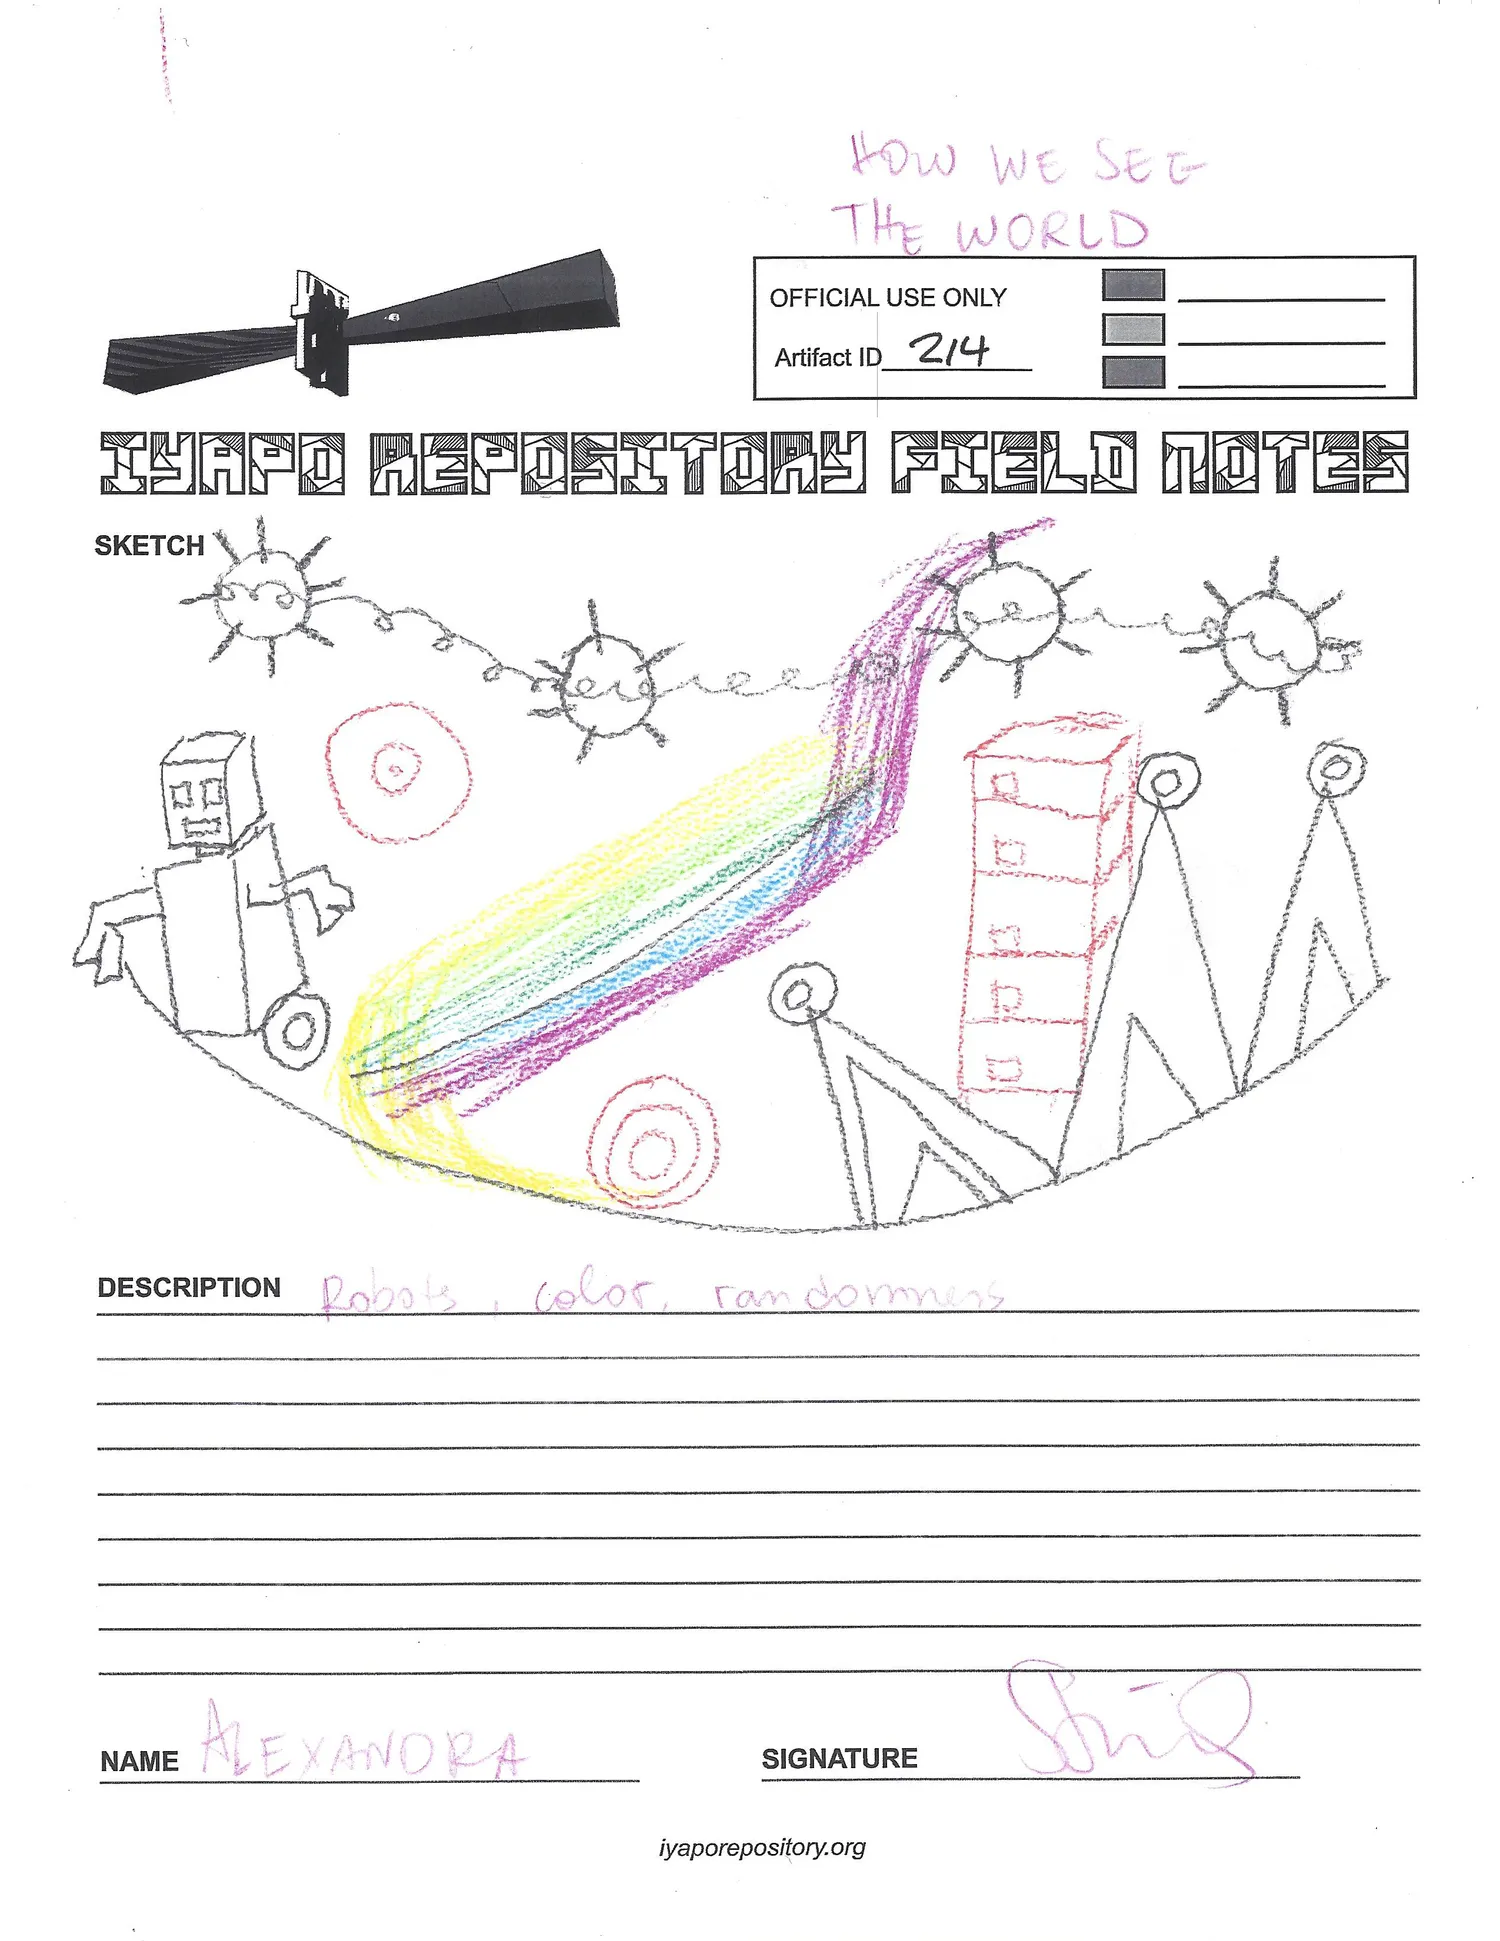 HOW WE SEE
THE WORLD
OFFICIAL USE ONLY
Artifact ID 214
IYAPO REPOSITORY FIELD NOTES
SKETCH
DESCRIPTION Robots, color, randomness
NAME ALEXANDRA
SIGNATURE
iyaporepository.org